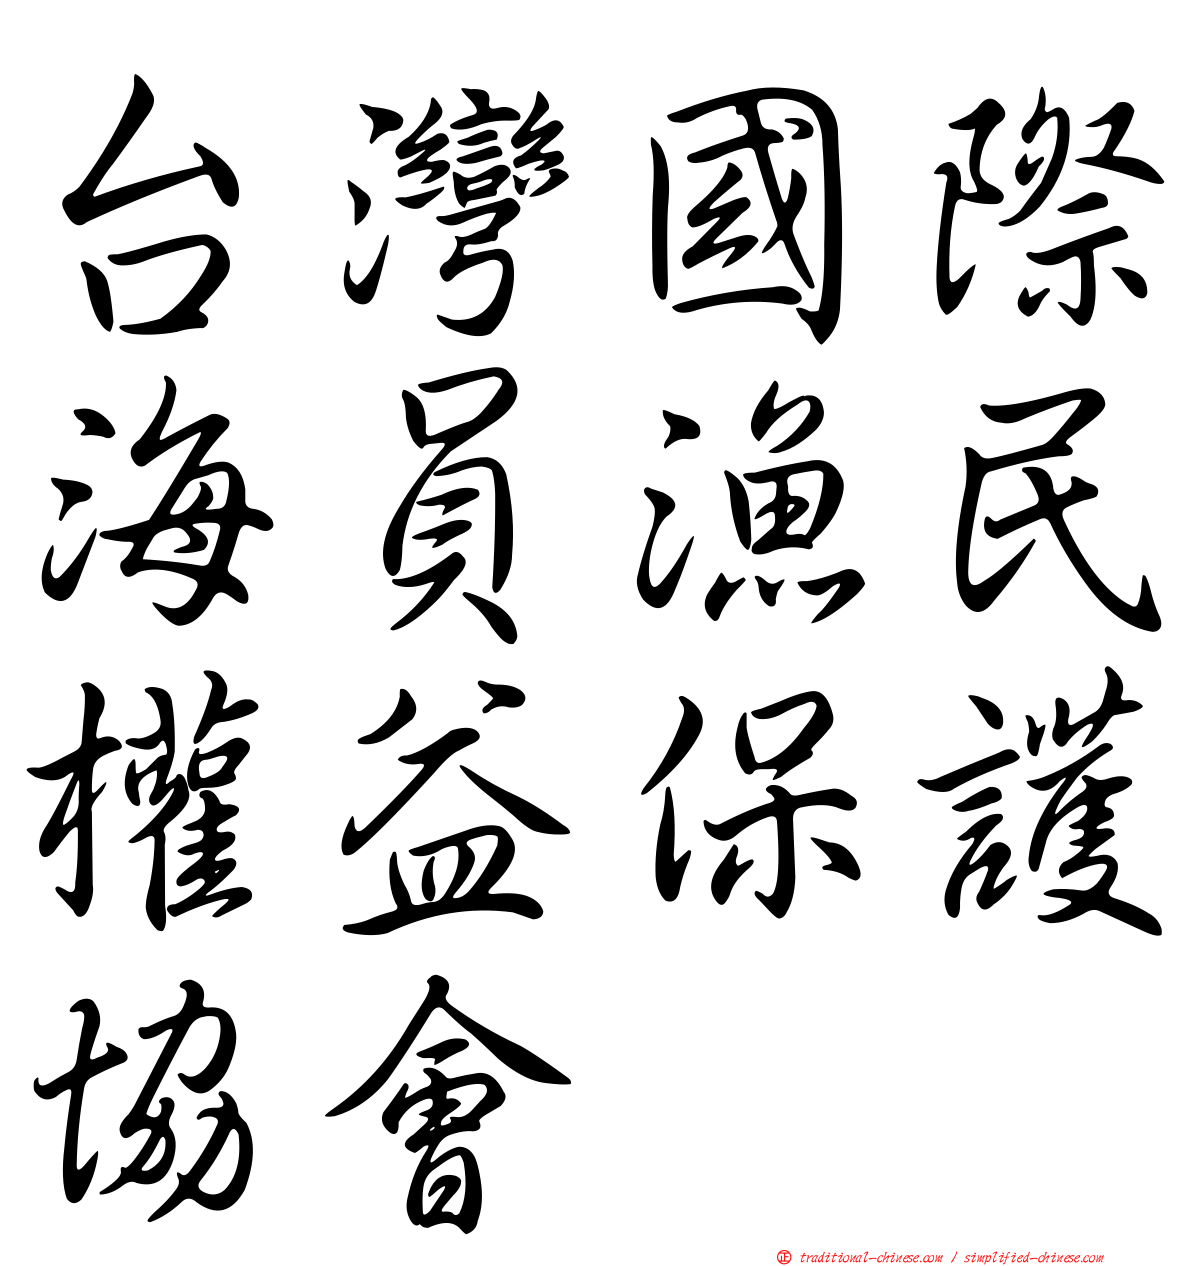 台灣國際
海員漁民
權益保護
協會
正 traditional-chinese.com / simplified-chinese.com